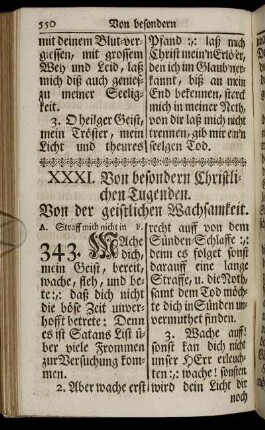 550 Von besondern
mit deinem Blut-ver-
giessen, mit grossem
Wey und Leid, laß
mich diß auch genieß-
zu meiner Seelig-
keit.
3. O heilger Geist,
mein Tröster, mein
Licht und theures
Pfand :,: laß mich
Christ mein'n Erlös'r,
den ich im Glaub'n er-
kannt, biß an mein
End bekennen, stärck
mich in meiner Noth,
von dir laß mich nicht
trennen, gib mir ein'n
seelgen Tod.
XXXI. Von besondern Christli-
chen Tugenden.
Von der geistlichen Wachsamkeit.
A. Straff mich nicht in P.
343. Mache
dich,
mein Geist, bereit,
wache, fleh, und be-
te :,: daß dich nicht
die böse Zeit unver-
hofft betrete: Denn
es ist Satans List ü-
ber viele Frommen
zur Versuchung kom-
men.
2. Aber wache erst
recht auf von dem
Sünden-Schlaffe :,:
denn es folget sonst
darauff eine lange
Straffe, u. die Noth,
samt dem Tod möch-
te dich in Sünden un-
vermuthet finden.
3. Wache auff!
sonst kan dich nicht
unser HErr erleuch-
ten :,: wache! sonsten
wird dein Licht dir
noch